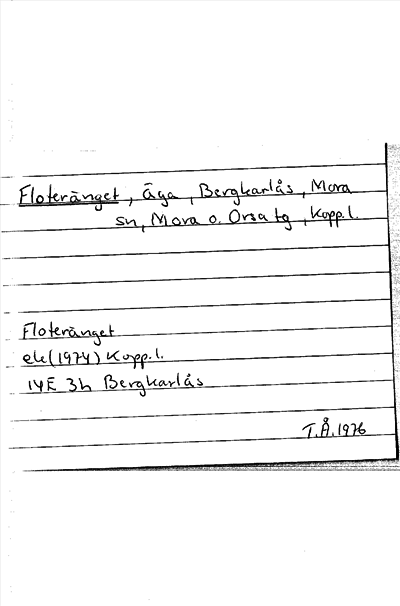 Floteränget, äga, Bergkarlås, Mora
sn, Mora o. Orsa tg, Kopp.l.
Floteränget
ek (1974) Kopp.l.
14E 3h Bergkarlås
T.Å. 1976